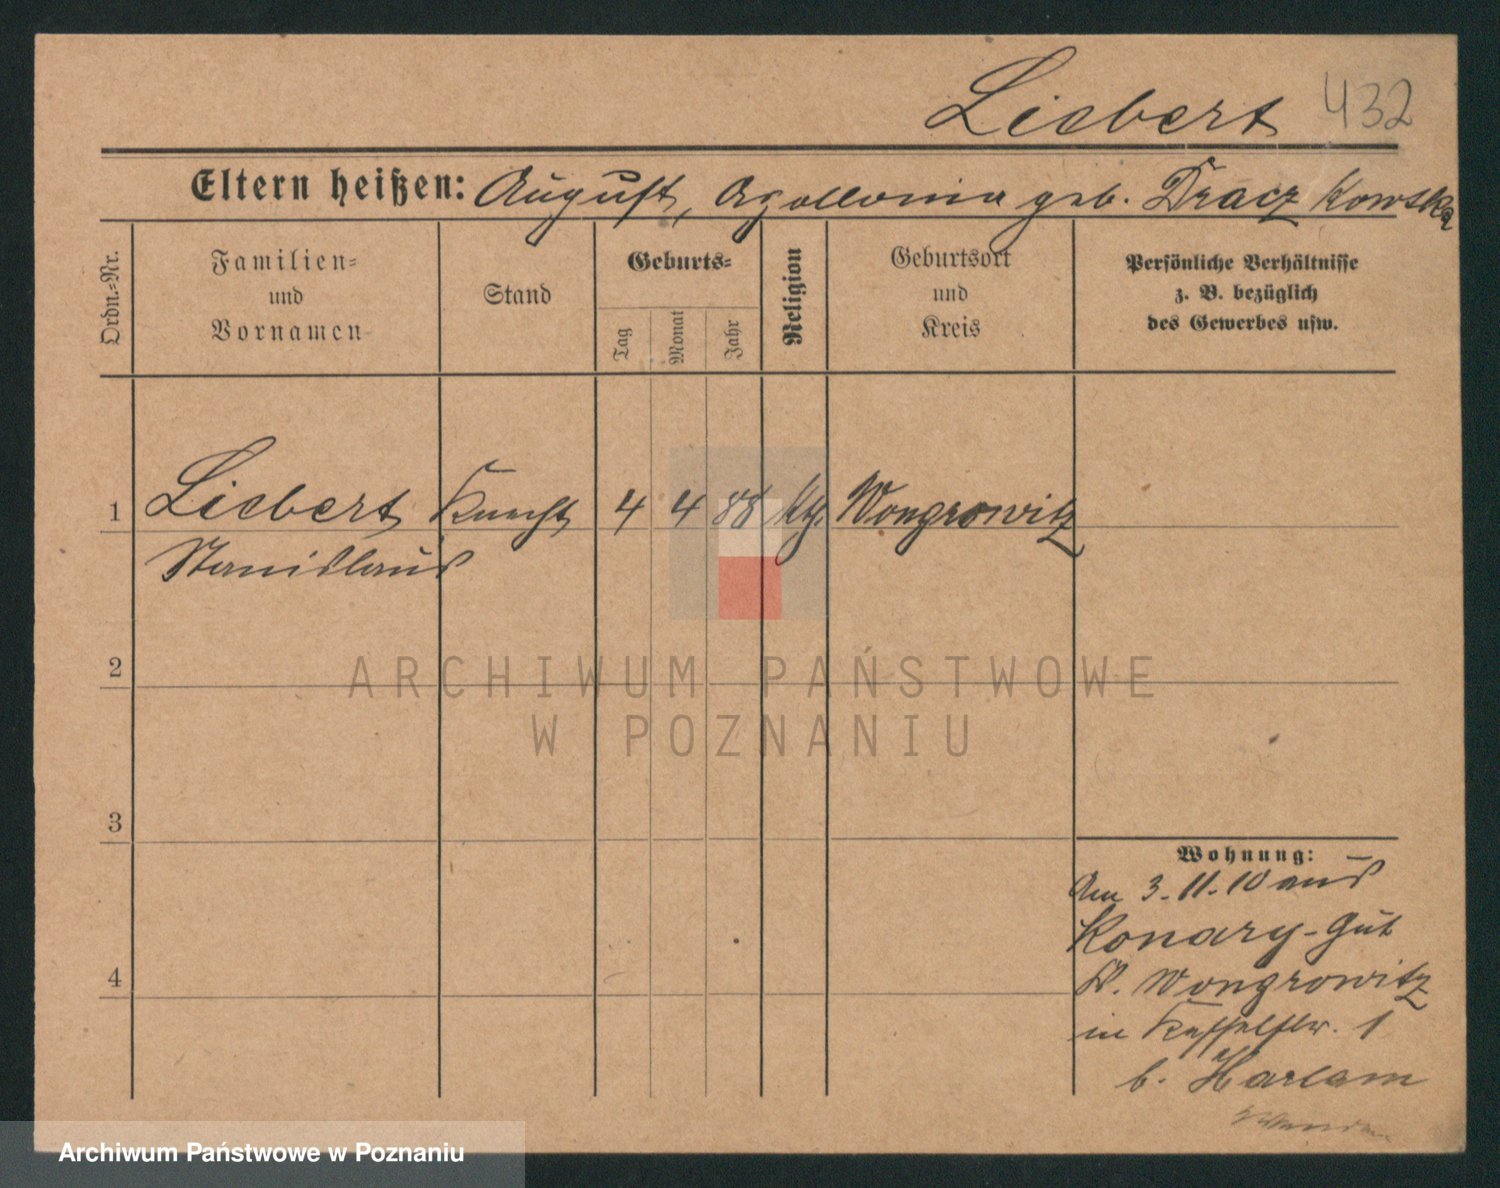 Liebert 432
Eltern heißen: August, Apollonia geb. Draczkowska
Ordn.-Nr.
Familien-
und
Vornamen
Stand
Geburts-
Tag
Monat
Jahr
Religion
Geburtsort
und
Kreis
Persönliche Verhältnisse
z. B. bezüglich
des Gewerbes usw.
1 Liebert Knecht 4 4 88 kth. Wongrowitz
Stanislaus
2
ARCHIWUM PAŃSTWOWE
W POZNANIU
3
Wohnung:
Am 3.11.10 aus
Konary-Gut
K. Wongrowitz
in 1
b. Harlam
4
Archiwum Państwowe w Poznaniu